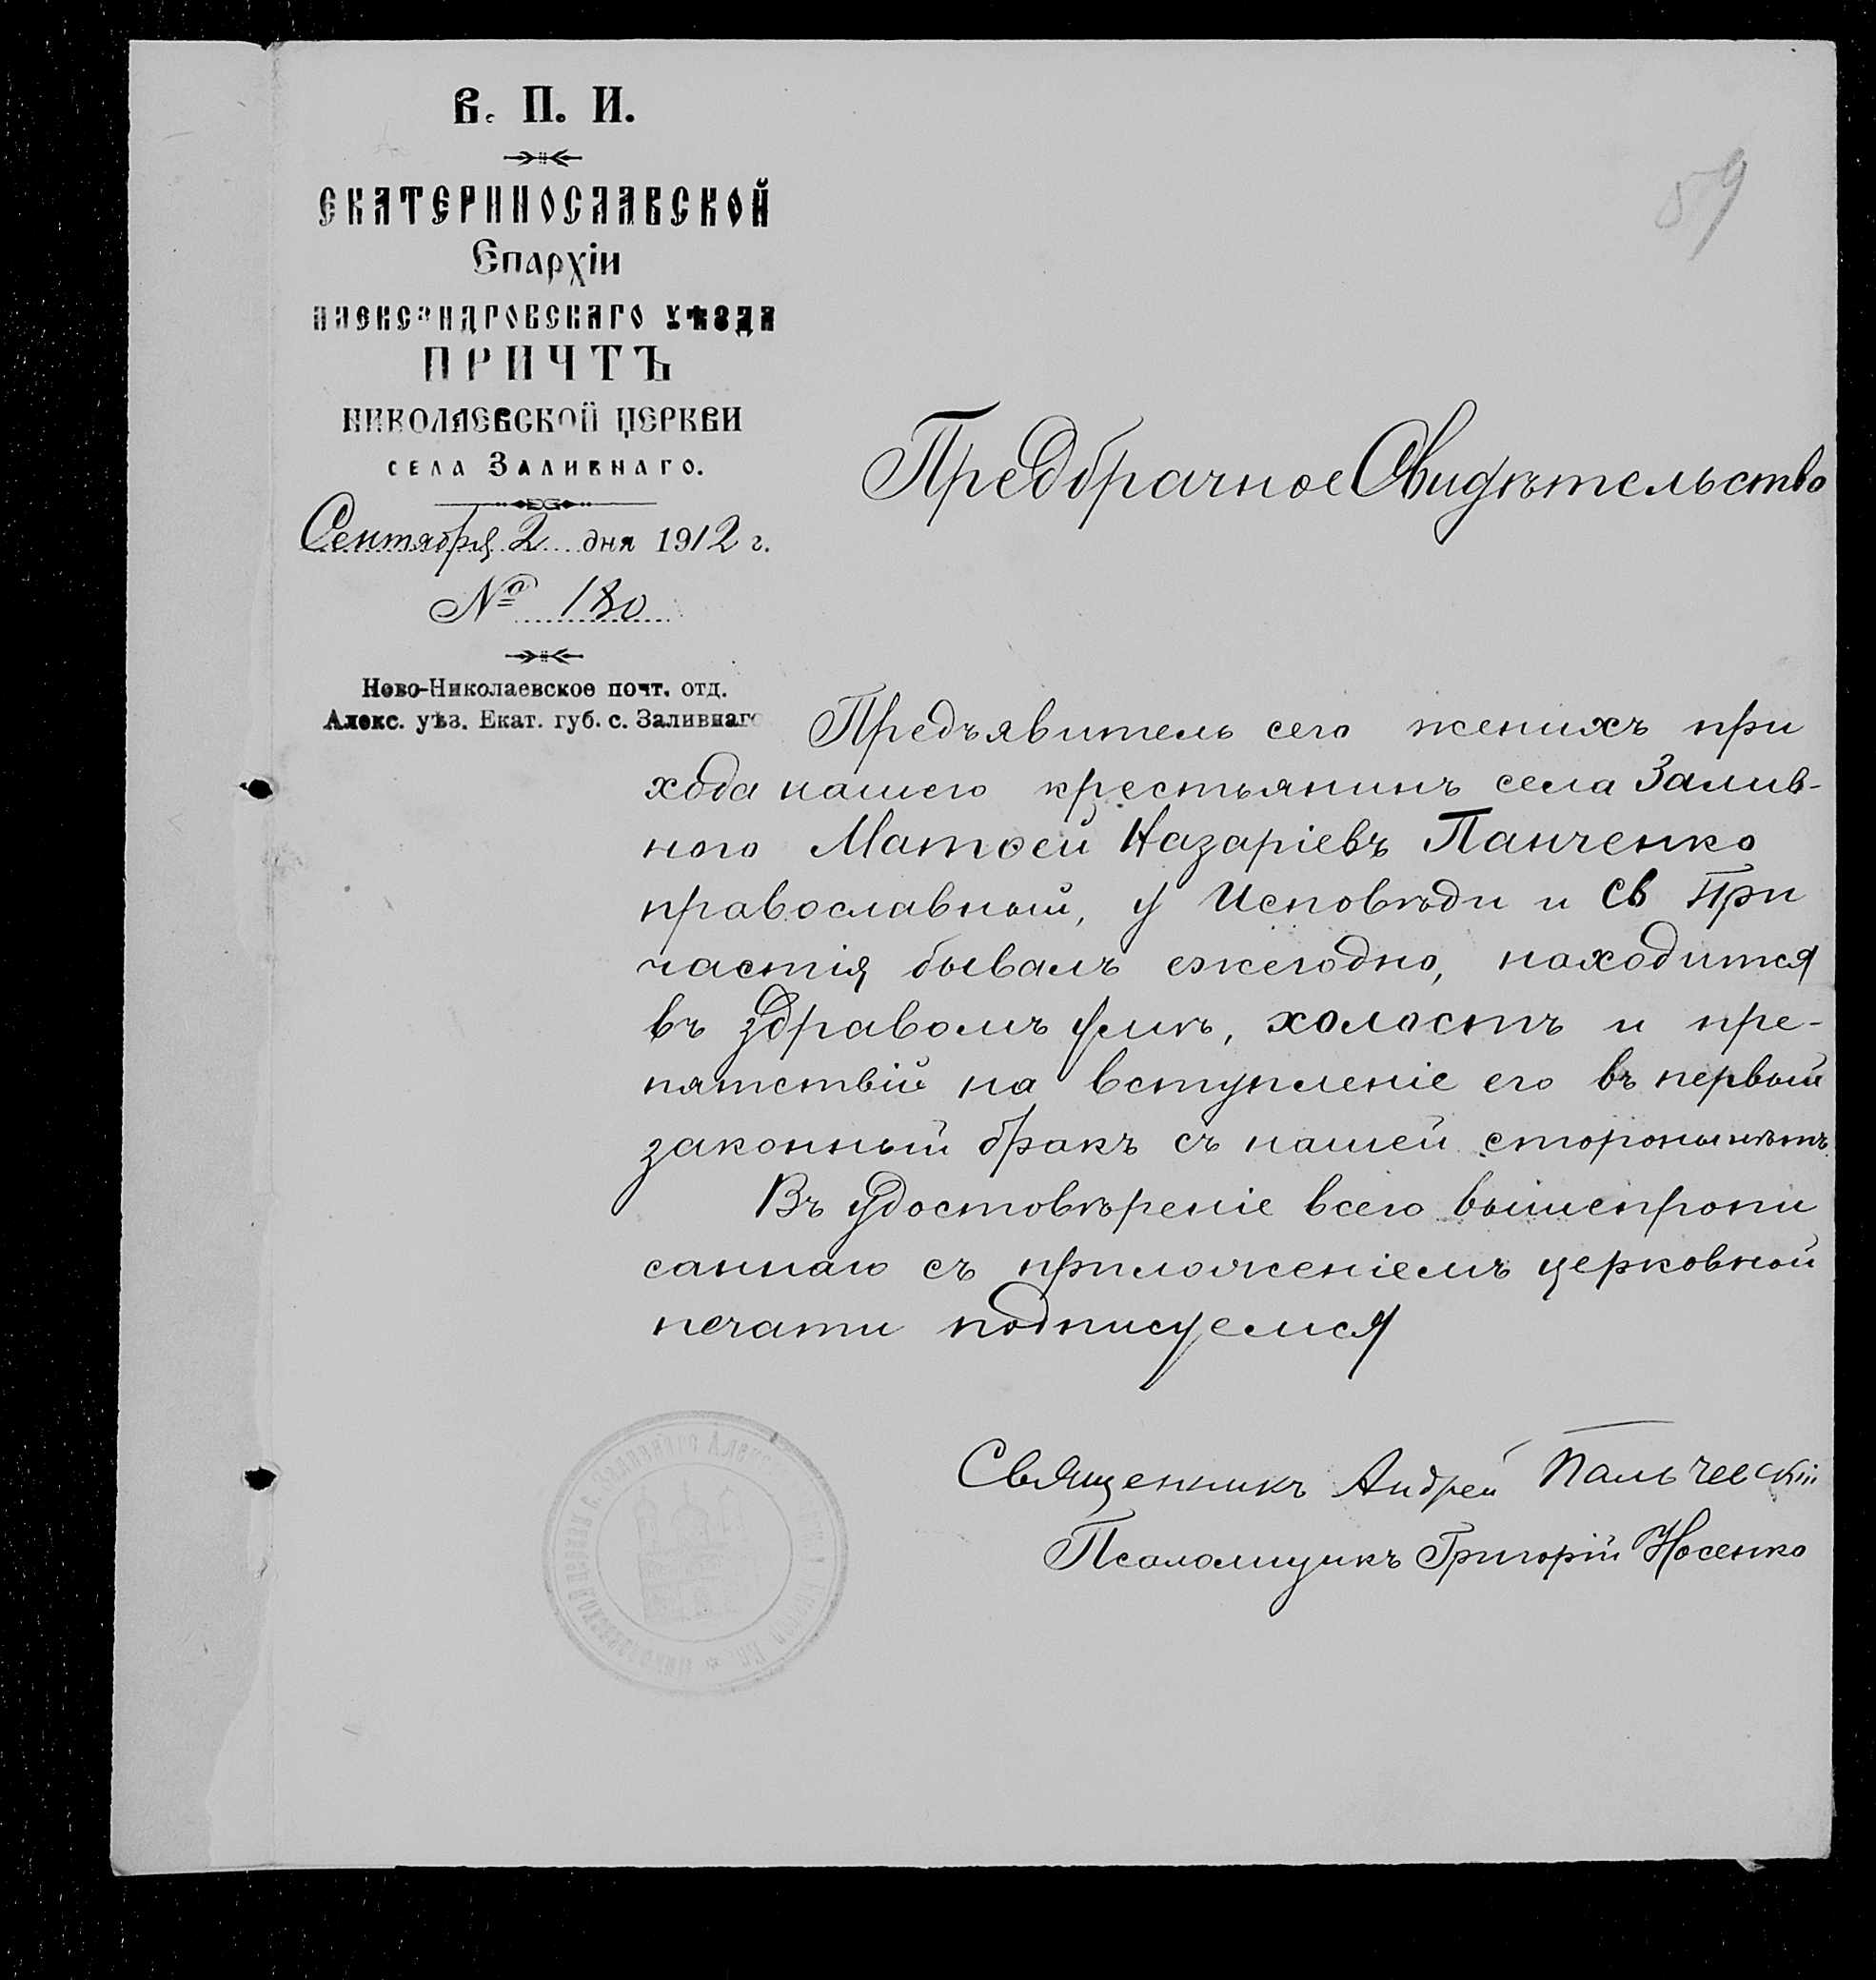 В. П. И.
ЕКАТЕРИНОСЛАВСКОЙ
Епархіи
АЛЕКСАНДРОВСКАГО УѢЗДА
ПРИЧТЪ
НИКОЛАЕВСКОЙ ЦЕРКВИ
СЕЛА ЗАЛИВНАГО.
Сентября 2 дня 1912 г.
№ 180
Ново-Николаевское почт. отд.
Алекс. уѣз. Екат. губ. с. Заливнаго
59
Предбрачное Свидѣтельство
Предъявитель сего женихъ при
хода нашего крестьянинъ села Залив-
ного Матѳей Назаріевъ Панченко
православный, у Исповѣди и Св При
частія бывалъ ежегодно, находится
въ здравомъ умѣ, холостъ и пре-
пятствій на вступленіе его въ первый
законный бракъ съ нашей стороны нѣтъ.
Въ удостовѣреніе всего вышепропи
саннаго съ приложеніемъ церковной
печати подписуемся
Священникъ Андрей Пальчевскій
Псаломщикъ Григорій Носенко